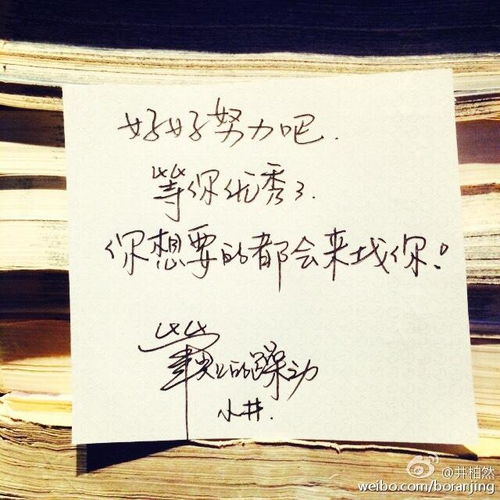 好好努力吧.
等你优秀了.
你想要的都会来找你!
的躁动
小井.
@井柏然
weibo.com/boranjing